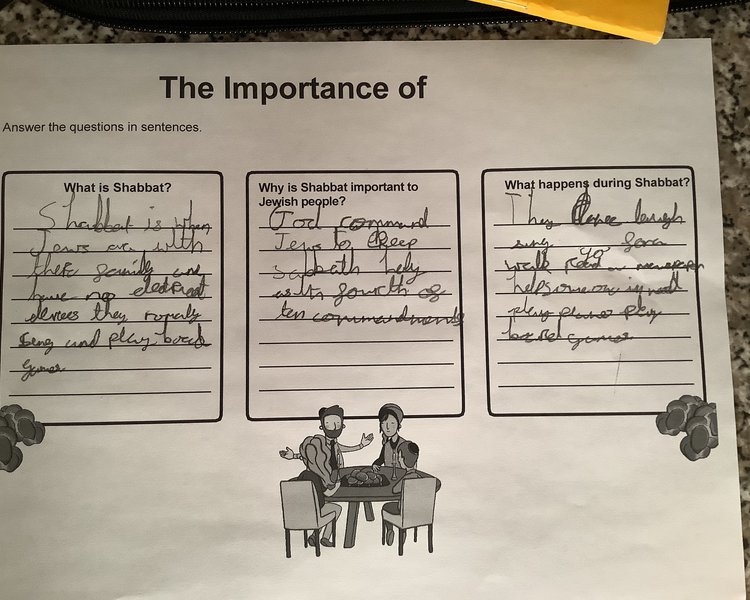 The Importance of
Answer the questions in sentences.
What is Shabbat?
Shabbat is when
Jews are with
there family and
have no
devices they
sing and play board
games
Why is Shabbat important to
Jewish people?
God command
Jews to keep
sabbath holy
with fourth of
ten commandments
What happens during Shabbat?
They dance laugh
sing go for a
walk read a newspaper
help someone
play piano play
board games